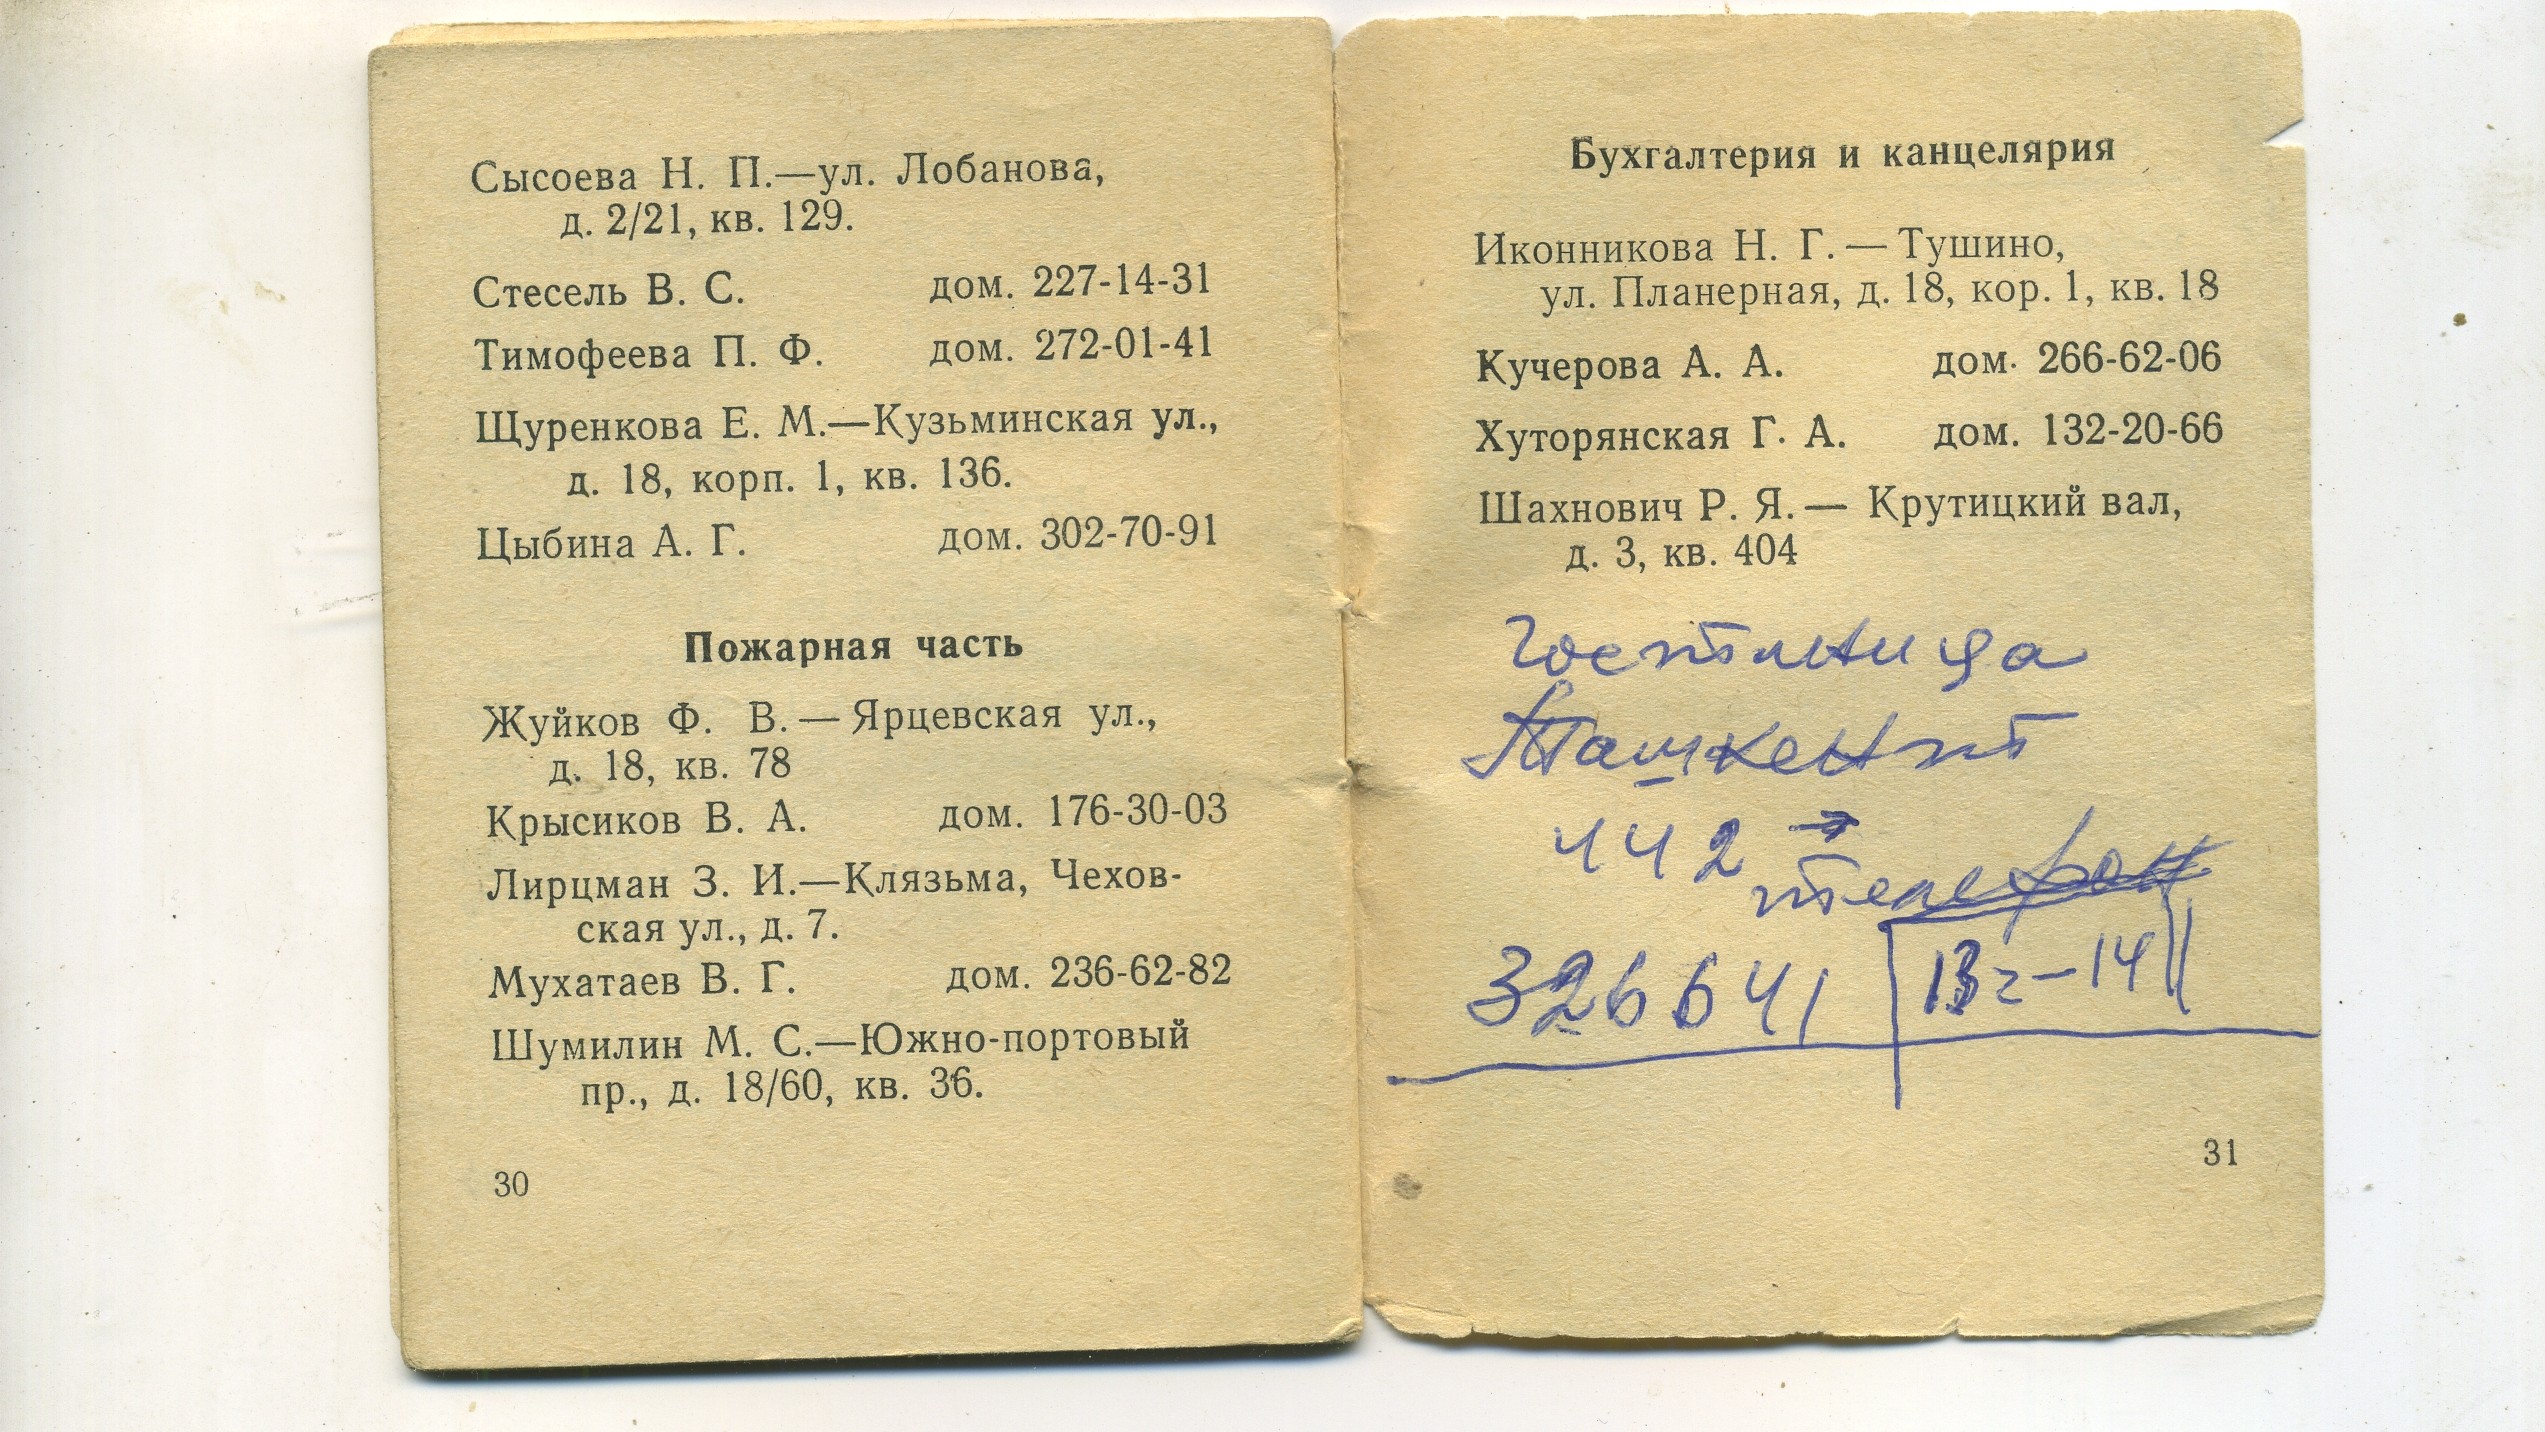 Сысоева Н. П.—ул. Лобанова,
д. 2/21, кв. 129.
Стесель В. С. дом. 227-14-31
Тимофеева П. Ф. дом. 272-01-41
Щуренкова Е. М.—Кузьминская ул.,
д. 18, корп. 1, кв. 136.
Цыбина А. Г. дом. 302-70-91
Пожарная часть
Жуйков Ф. В. — Ярцевская ул.,
д. 18, кв. 78
Крысиков В. А. дом. 176-30-03
Лирцман З. И.—Клязьма, Чехов-
ская ул., д. 7.
Мухатаев В. Г. дом. 236-62-82
Шумилин М. С.—Южно-портовый
пр., д. 18/60, кв. 36.
30
Бухгалтерия и канцелярия
Иконникова Н. Г. — Тушино,
ул. Планерная, д. 18, кор. 1, кв. 18
Кучерова А. А. дом. 266-62-06
Хуторянская Г. А. дом. 132-20-66
Шахнович Р. Я. — Крутицкий вал,
д. 3, кв. 404
гостиница
Ташкент
442 →
телефон
326641 13 -14
31